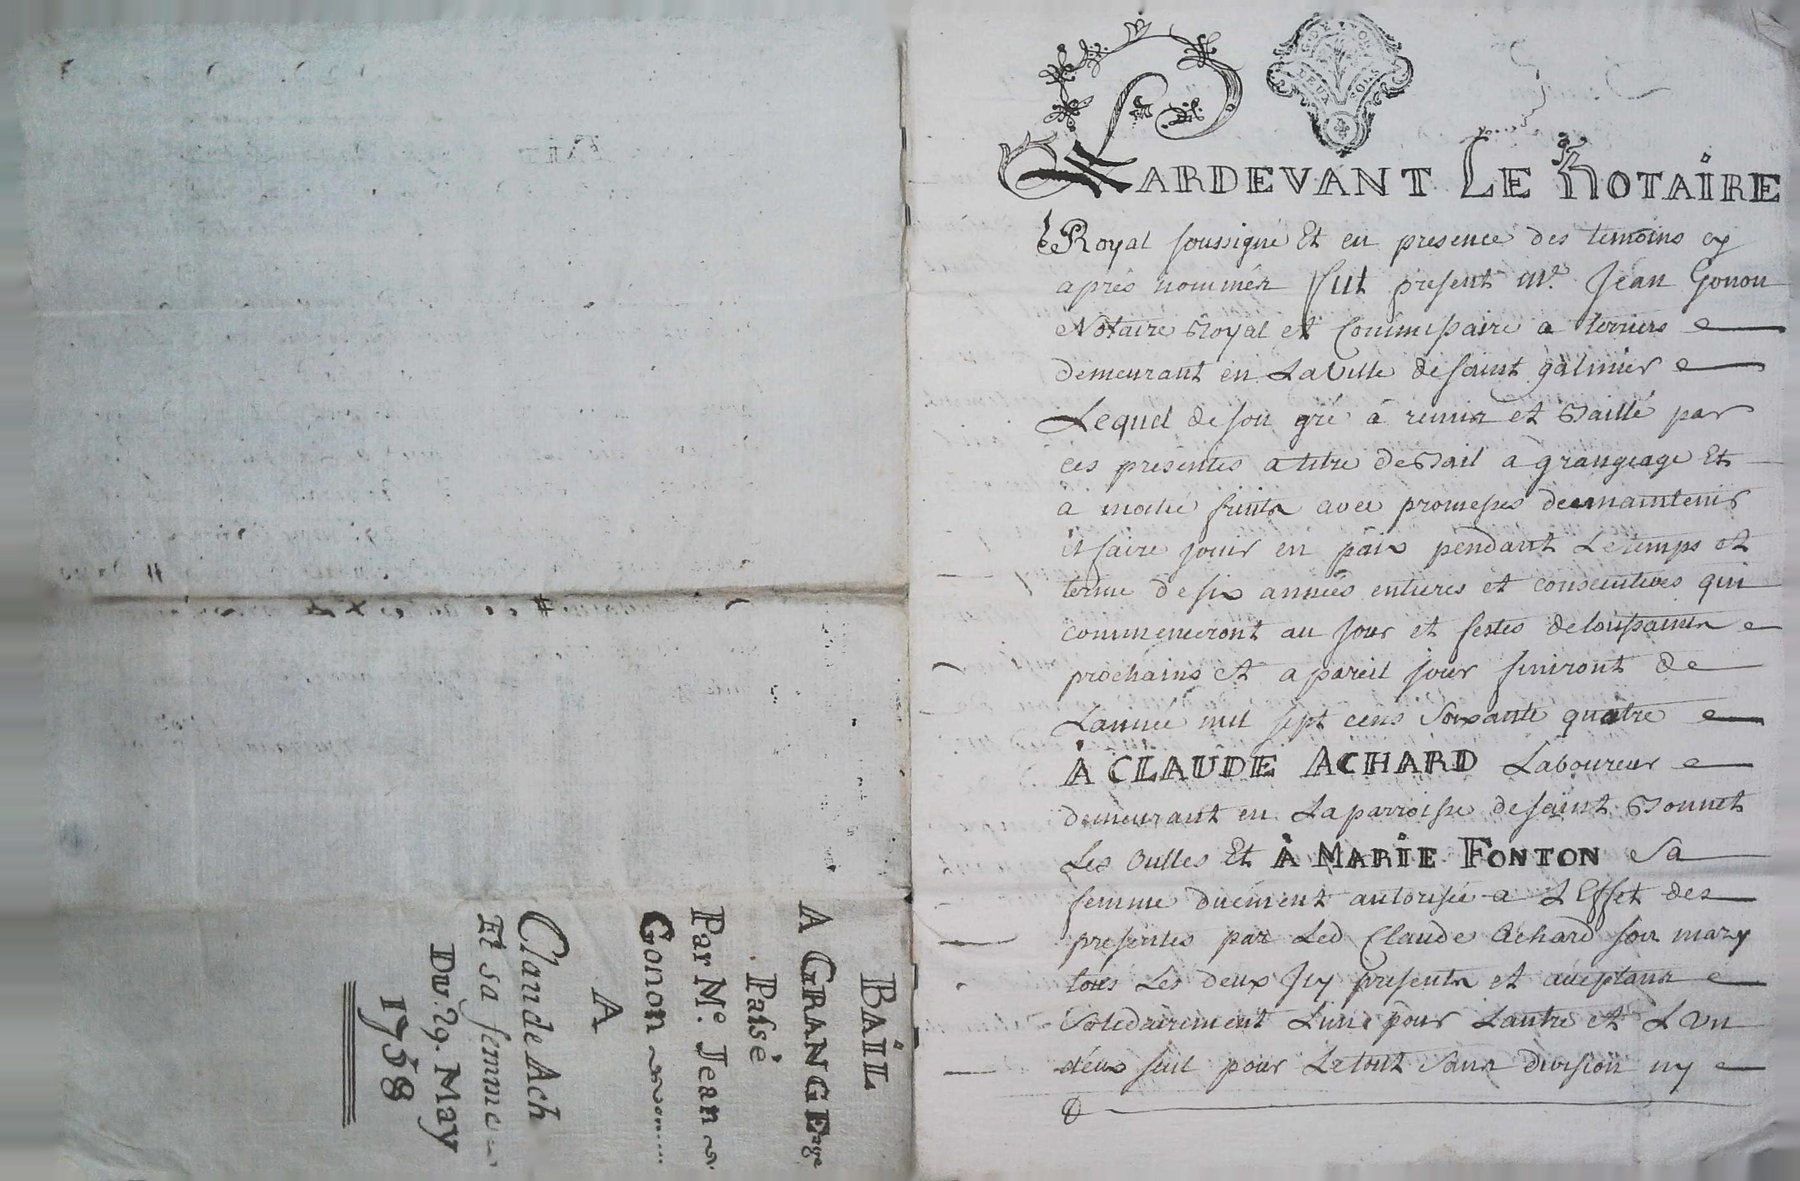 BAIL
A GRANGEage
Passé
Par Me. Jean
Gonon
A
Claude Ach
Et sa femme
Du 29. May
1758
G DE LYON
DEUX SOLS
PARDEVANT LE NOTAIRE
Royal soussigné Et en presence des temoins cy
après nommés fut present Me. Jean Gonon
Notaire Royal et Commissaire a terriers
demeurant en La Ville de saint galmier
Lequel de son gré à remis et Baillé par
ces presentes a titre de Bail a grangeage Et
a moitié fruits avec promesses de maintenir
et faire jouir en paix pendant Le temps et
terme de six années entieres et consecutives qui
commenceront au jour et festes de toussaints
prochains et a pareil jour finiront de
L'année mil sept cens soixante quatre
À CLAUDE ACHARD Laboureur
demeurant en La parroisse de saint Bonnet
Les Oulles Et À MARIE FONTON Sa
femme duëment autorisée a L'Effet des
presentes par Led Claude Achard son mary
tous Les deux Jcy presents et acceptans
Solidairement L'un pour L'autre et L'Un
d'eux seul pour Le tout Sans division ny